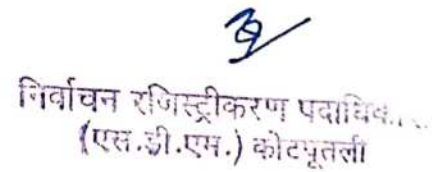 निर्वाचन रजिस्ट्रीकरण
(एस.डी.एम.) कोटपूतली